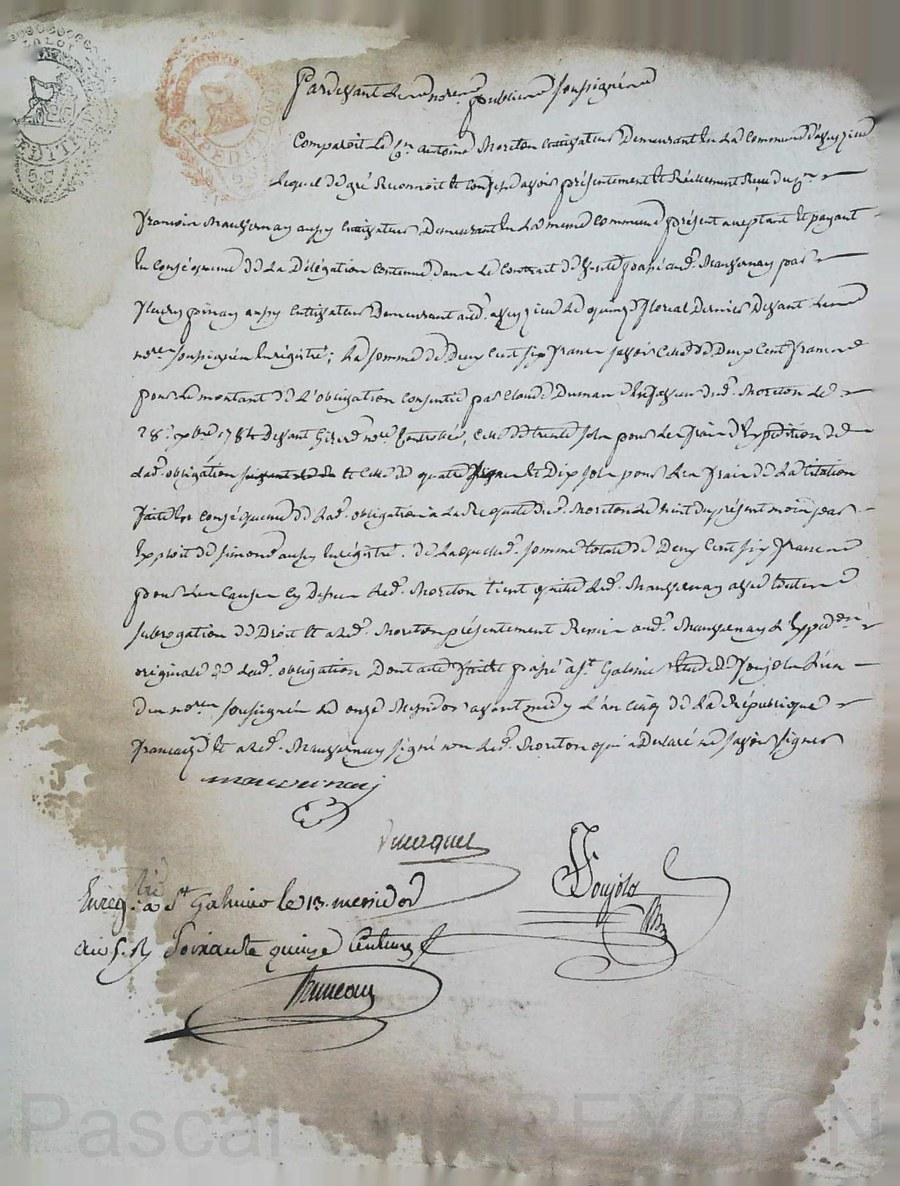 Pardevant les nores. publics soussignés
Comparoit le Cn. antoine Moreton Cultivateur demeurant en la Commune d'aveyzieu
lequel de gré Reconnoit et Confesse avoir présentement et Réellement Reçu du Cn.
françois Mauvernay aussy Cultivateur demeurant en la même Commune présent acceptant et payant
en Conséquence de la Délégation Contenue dans le Contrat de vente passé aud. Mauvernay par
fleury pinay aussy Cultivateur demeurant aud. aveyzieu le quinze floréal dernier devant les
nores. soussignés Enregistré; la somme de deux Cent six francs savoir Celle de deux Cent francs
pour le montant de l'obligation Consentie par Claude Dumas en faveur dud. Moreton le
28e. 1784 devant nore. Controllée, Celle de trente sols pour les frais d'Expédition de
lad. obligation et Celle de quatre et dix sols pour les frais de la Citation
faite en Conséquence de lad. obligation à la Requête dud. Moreton le vint du présent mois par
Exploit de Simond aussy Enregistré. de laquelle. somme totale de Deux Cent six francs
pour les Causes Cy dessus led. Moreton tient quitte led. Mauvernay avec toutes
subrogation de Droit et a led. Moreton présentement Remis aud. Mauvernay l'Expedon.
originale de lad. obligation Dont acte fait et passé à St. Galmier Etude de Poujols l'un
des nores. soussignés le onze Messidor avant midy l'an Cinq de la République
française et a led. Mauvernay signé non led. Moreton qui a Declaré ne savoir signer
mauvernay
Ducoquet
Poujols
Enreg.tré à St Galmier le 13. messidor
an 5. R/ Soixante quinze Centimes
Bruneau
Pascal